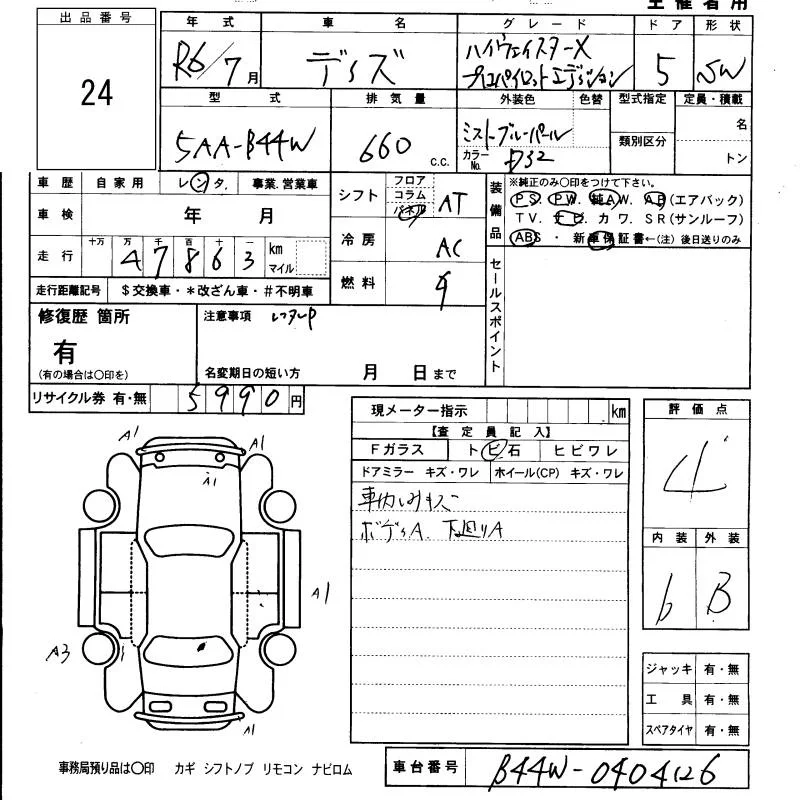 主催者用
出品番号
24
年式
R6/7月
車名
デイズ
グレード
ハイウェイスターX
プロパイロットエディション
ドア
5
形状
SW
型式
5AA-B44W
排気量
660 c.c.
外装色
ミストブルーパール
カラーNo.
色替
型式指定
類別区分
定員・積載
名
トン
車歴 自家用 レンタ. 事業.営業車
車検 年 月
走行 十万 万 千 百 十
4 7 8 6 3 km マイル
走行距離記号 $交換車・*改ざん車・#不明車
シフト フロア コラム パネル AT
冷房 AC
燃料
装備品
※純正のみ○印をつけて下さい。
PS PW 純AW. AB(エアバック)
TV. ナビ カワ. SR(サンルーフ)
ABS ・ 新車保証書←(注) 後日送りのみ
セールスポイント
修復歴 箇所
有
(有の場合は○印を)
注意事項 レンタUP
名変期日の短い方 月 日まで
リサイクル券 有・無 5990円
現メーター指示 km
【査定員記入】
Fガラス ト ビ 石 ヒビワレ
ドアミラー キズ・ワレ ホイール(CP) キズ・ワレ
車内シミキズ
ボディA. 下廻りA
評価点
4
内装 外装
B
A1
A1
A1
A1
A3
A1
ジャッキ 有・無
工具 有・無
スペアタイヤ 有・無
事務局預り品は○印 カギ シフトノブ リモコン ナビロム
車台番号 B44W-0404126